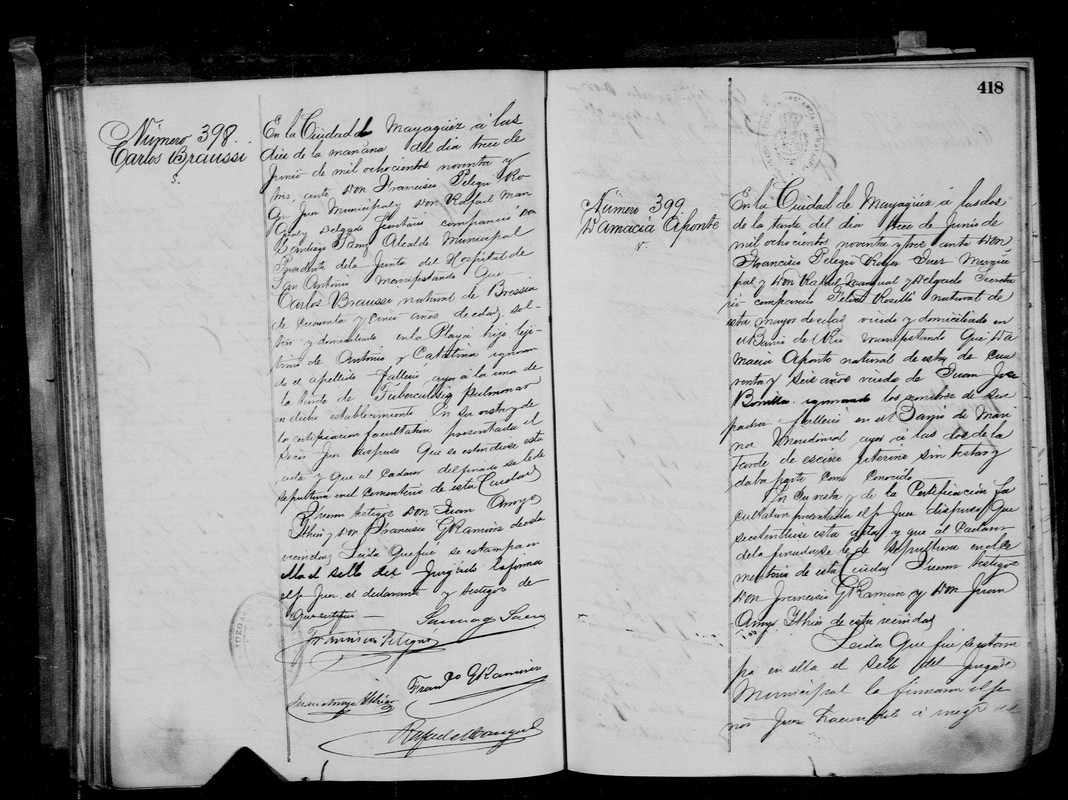 Número 398.
Carlos Braussi.
S.
En la Ciudad de Mayagüez á las
diez de la mañana del dia trece de
Junio de mil ochocientos noventa y
tres, ante Don Francisco Pelegri Ro-
ger Juez Municipal y Don Rafael Man
gual y Delgado Secretario compareció Don
Santiago Sanz Alcalde Municipal
Presidente de la Junta del Hospital de
San Antonio manifestando Que
Carlos Braussi natural de Bressia
de cuarenta y cinco años de edad, sol-
tero y domiciliado en la Playa hijo lejí-
timo de Antonio y Catalina ignoran
do el apellido falleció ayer á la una de
la tarde de Tuberculosis pulmonar
en dicho establecimiento. En su vista y de
la certificacion facultativa presentada el
Señor Juez dispuso Que se estendiese esta
acta y que al cadaver del finado se le de
sepultura en el cementerio de esta Ciudad
Fueron testigos Don Juan Amyo
Ithier y Don Francisco G Ramirez de esta
vecindad. Leida Que fué se estampa en
ella el sello del Juzgado la firma
el Sr Juez, el declarante y testigos de
Que certifico
Santiago Sanz
Francisco Pelegri
Franco G Ramirez
Juan Amyo Ithier
Rafael Mangual
418
Número 399
Damacia Aponte
V.
En la Ciudad de Mayagüez á las dos
de la tarde del dia trece de Junio de
mil ochocientos noventa y tres ante Don
Francisco Pelegri Roger Juez Munici
pal y Don Rafael Mangual y Delgado Secreta
rio compareció Felix Roselló natural de
esta mayor de edad viudo y domiciliado en
el Barrio de Rio manifestando Que Da
macia Aponte natural de esta, de cua
renta y seis años viuda de Juan José
Bonilla ignorando los nombres de sus
padres falleció en el Barrio de Mari
na Meridional ayer á las dos de la
tarde de uterino sin testar y
daba parte como conocido
En su vista y de la Certificación fa
cultativa presentada el Sr Juez dispuso Que
se estendiese esta acta y que al Cadaver
de la finada se le de sepultura en el ce
menterio de esta Ciudad Fueron testigos
Don Francisco G Ramirez y Don Juan
Amyo Ithier de esta vecindad
Leida Que fué se estam
pa en ella el Sello del Juzgado
Municipal la firman el Se
ñor Juez